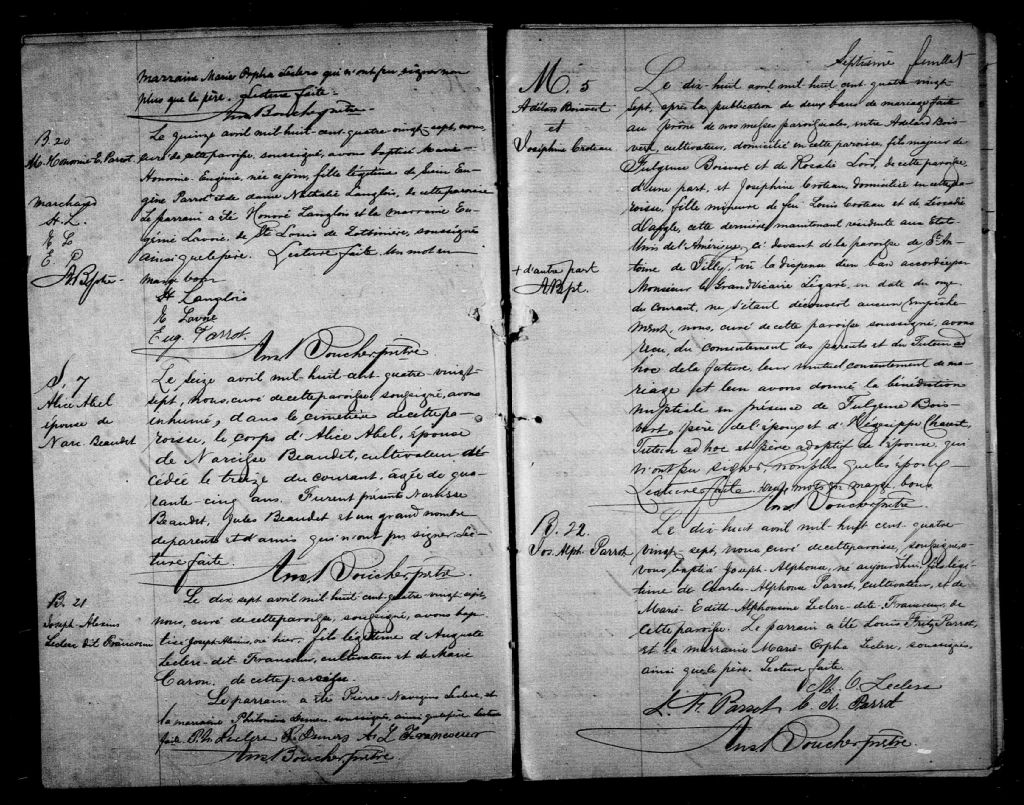 marraine Marie Orpha Leclerc qui n'ont pu signer non
plus que le père. Lecture faite.
Ans. Boucher ptre
B. 20
M. Honorie E. Parrot.
marchand
H. L.
E L
E. P.
A B ptre
Le quinze avril mil huit cent quatre vingt sept, nous,
curé de cette paroisse, soussigné, avons baptisé Marie
Honorie Eugénie, née ce jour, fille légitime de Louis Eu-
gène Parrot et de dame Nathalie Langlois, de cette paroisse
Le parrain a été Honoré Langlois et la marraine Eu-
génie Lavoie, de St Louis de Lotbinière, soussignés
ainsi que le père. Lecture faite. Un mot en
marge bon.
H Langlois
E Lavoie
Eug. Parrot.
Ans. Boucher ptre.
S. 7
Alice Abel
épouse de
Narc Beaudet
Le seize avril mil-huit cent-quatre-vingt
sept, nous, curé de cette paroisse, soussigné, avons
inhumé, dans le cimetière de cette pa-
roisse, le corps d'Alice Abel, épouse
de Narcisse Beaudet, cultivateur, dé-
cédée le treize du courant, agée de qua-
rante-cinq ans. Furent présents Narcisse
Beaudet, Jules Beaudet et un grand nombre
de parents et d'amis qui n'ont pu signer. Lec-
ture faite.
Ans. Boucher ptre.
B. 21
Joseph-Alexins
Leclerc dit Francoeur
Le dix sept avril mil-huit-cent-quatre-vingt sept,
nous, curé de cette paroisse, soussigné, avons bap-
tisé Joseph Alexins, né hier, fils légitime d'Auguste
Leclerc-dit Francoeur, cultivateur et de Marie
Caron, de cette paroisse.
Le parrain a été Pierre-Navigne Leclerc, et
la marraine Philomène Demers, soussignés, ainsi que le père. Lecture
faite. P. N Leclerc P. Demers A. L. Francoeur
Ans. Boucher ptre
Septième feuillet
M. 5
Adélard Boisvert
et
Joséphine Croteau
+ d'autre part
A B pt.
Le dix-huit avril mil huit cent quatre vingt
sept, après la publication de deux bans de mariage faite
au prône de nos messes paroissiales, entre Adélard Bois-
vert, cultivateur, domicilié en cette paroisse, fils majeur de
Fulgence Boisvert et de Rosalie, de cette paroisse,
d'une part, et Joséphine Croteau, domiciliée en cette pa-
roisse, fille mineure de feu Louis Croteau et de Léocadie
Daigle, cette dernière maintenant résidente aux Etats-
Unis de l'Amérique, ci devant de la paroisse de St An-
toine de Tilly,+ vu la dispense d'un ban accordée par
Monsieur le Grand Vicaire Légaré, en date du onze
du courant, ne s'étant découvert aucun empêche-
ment, nous, curé de cette paroisse soussigné, avons
reçu, du consentement des parents et du Tuteur ad
hoc de la future, leur mutuel consentement de ma-
riage et leur avons donné la bénédiction
nuptiale en présence de Fulgence Bois-
vert, père de l'époux et d'Hégésippe Charest,
Tuteur ad hoc et père adoptif de l'épouse, qui
n'ont pu signer, non plus que les époux.
Lecture faite. mots en marge bons
Ans. Boucher ptre.
B. 22.
Jos. Alph. Parrot
Le dix huit avril mil-huit cent quatre
vingt sept, nous curé de cette paroisse, soussigné, a-
vons baptisé Joseph-Alphonse, né aujourd'hui, fils légi-
time de Charles Alphonse Parrot, cultivateur, et de
Marie-Edith-Alphonsine Leclerc-dite Francoeur, de
cette paroisse. Le parrain a été Louis Parrot,
et la marraine Marie-Orpha Leclerc, soussignés,
ainsi que le père. Lecture faite.
M. O. Leclerc
L. F. Parrot C. A. Parrot
Ans. Boucher ptre.